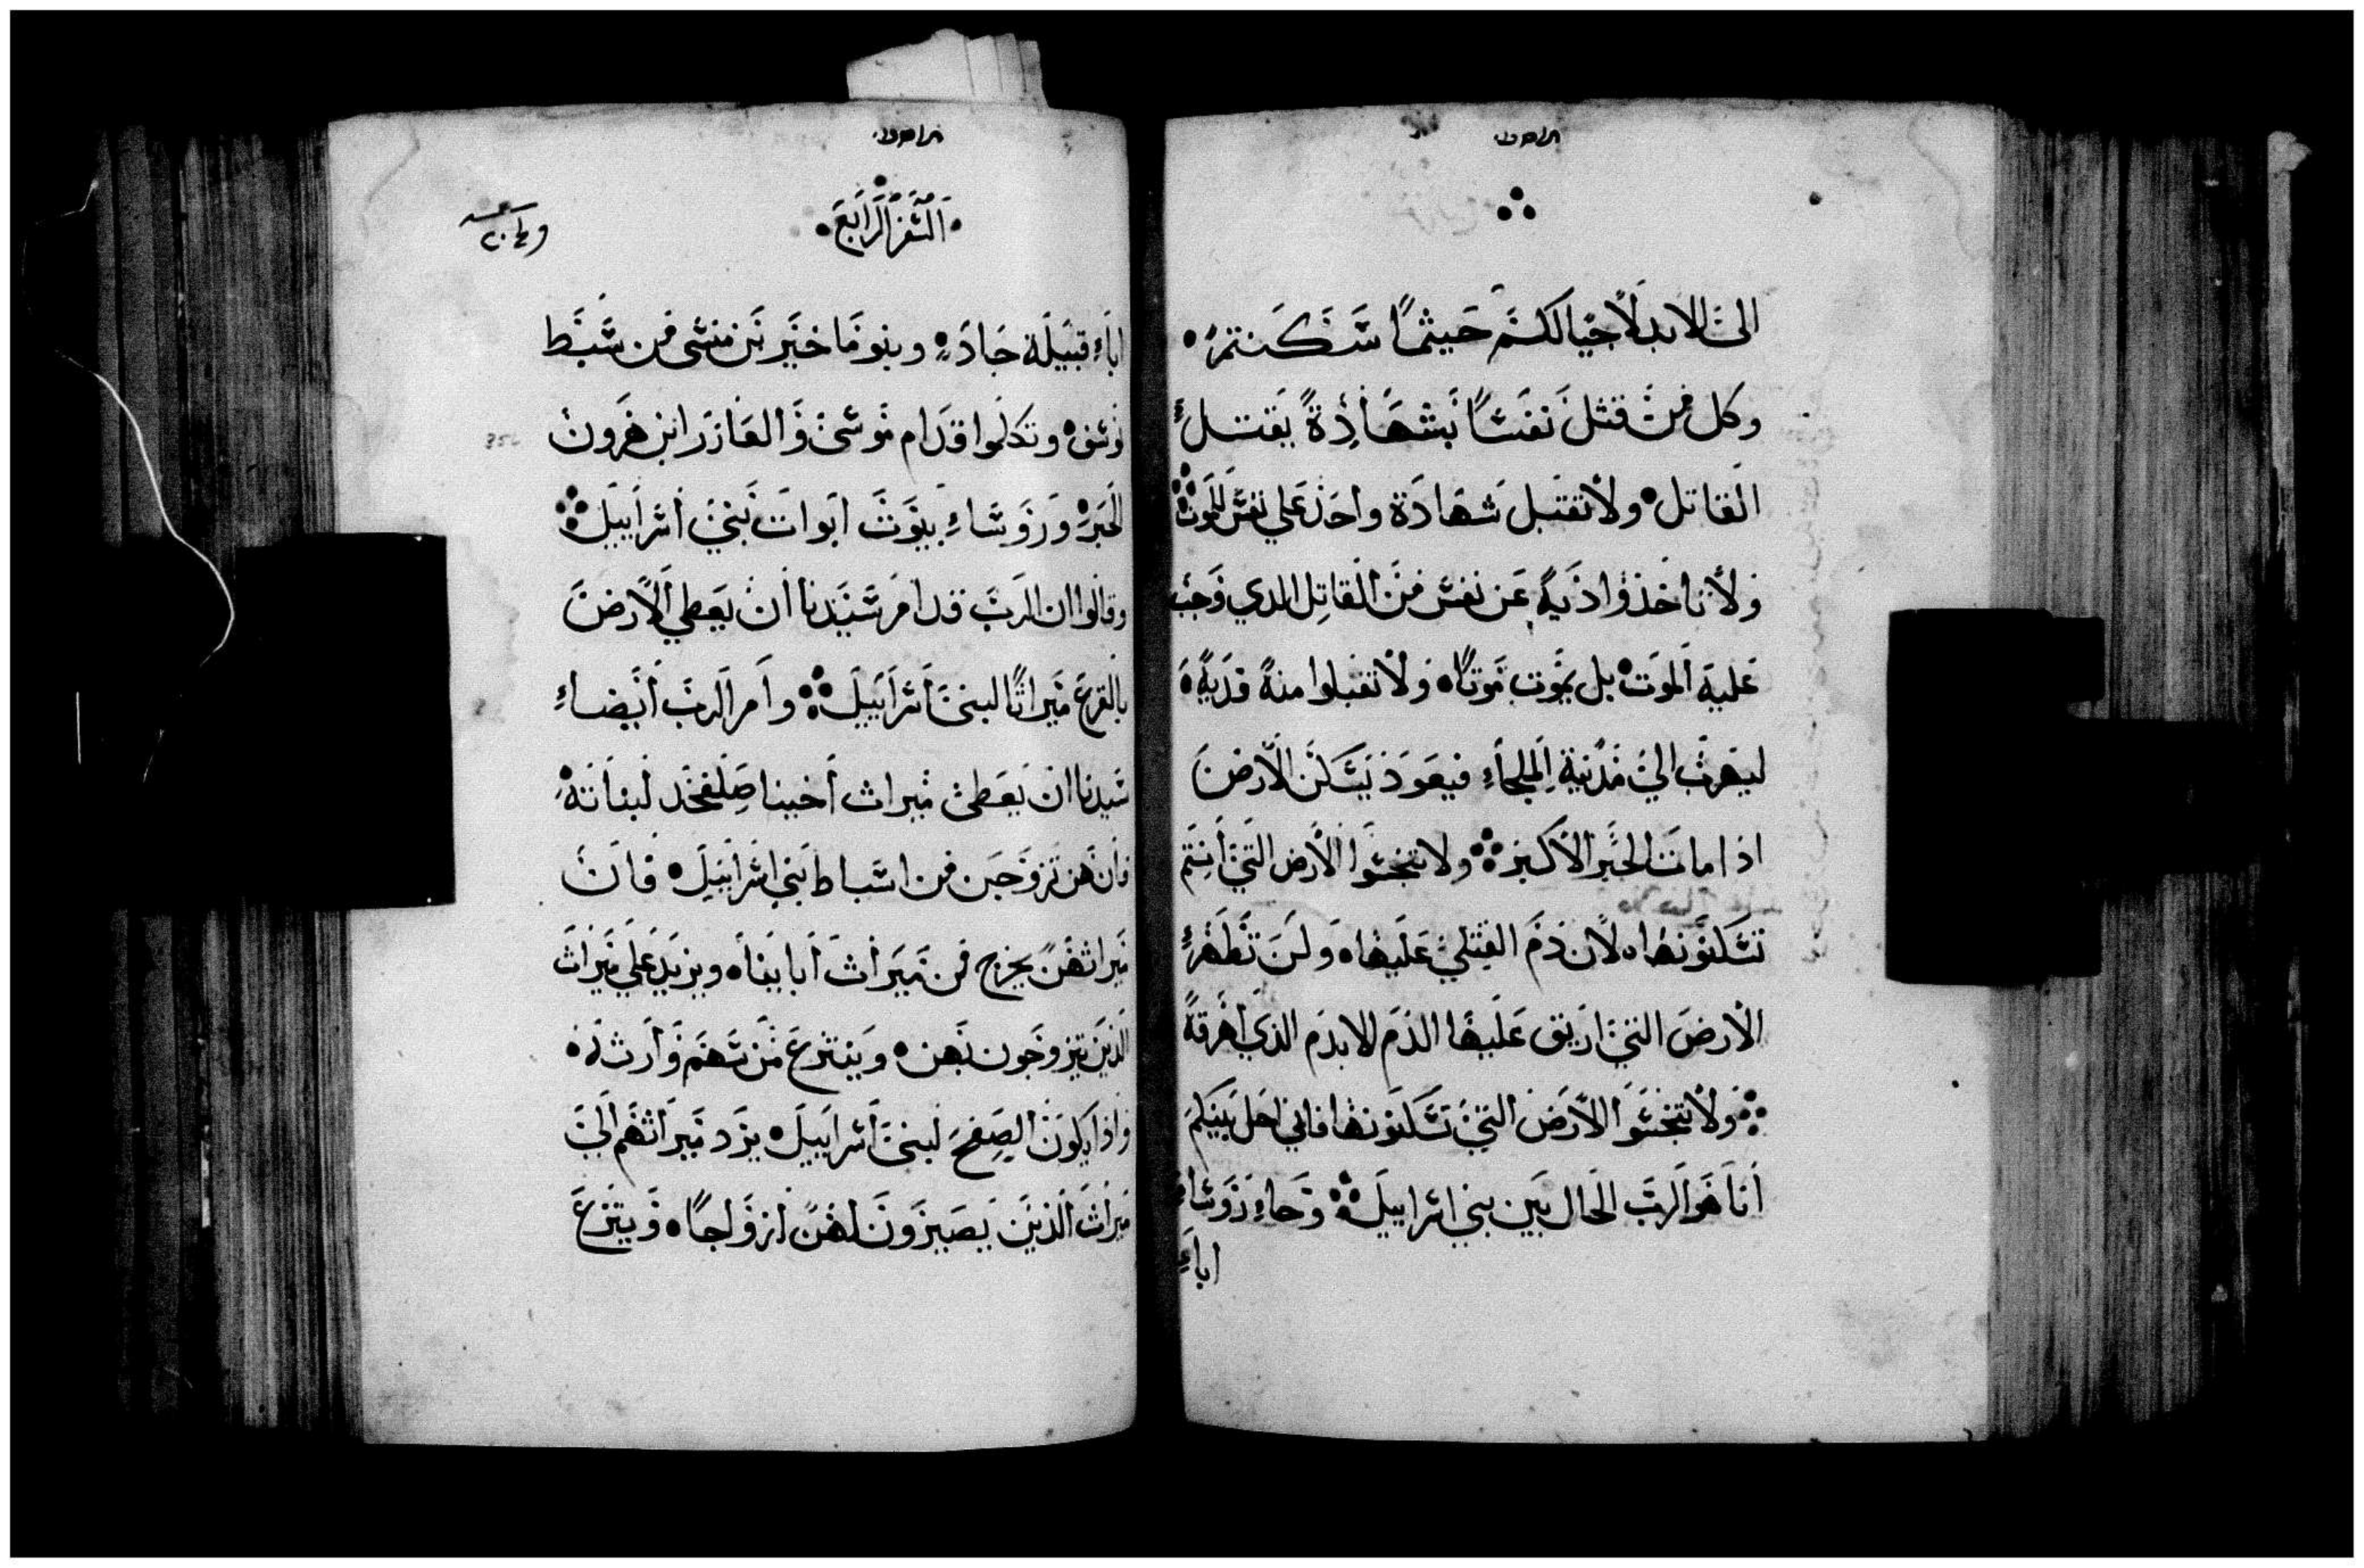 الى الابد لاجيالكم حيثما سكنتم
وكل من قتل نفسًا بشهادة يقتل
القاتل ولا تقبل شهادة واحد علي نفس للموت
ولا تاخذوا فدية عن نفس من القاتل الدي وجب
عليه الموت بل يموت موتًا ولا تقبلوا منه فدية
ليهرب الي مدينة الملجاء فيعود يسكن الارض
اذا مات الحبر الاكبر ولا تنجسوا الارض التي انتم
تسكنونها لان دم القتلي عليها ولن تطهر
الارض التي اريق عليها الدم الا بدم الذي اهرقه
ولا تنجسوا الارض التي تسكنونها فاني احل بينكم
انا هو الرب الحال بين بني اسراييل وجاء روساء
اباء
السفر الرابع
اباء قبيلة جاد وبنو ماخير بن منسى من سبط
وتكلموا قدام موسى والعازر ابن هرون
الحبر وروساء بيوت ابوات بني اسراييل
وقالوا ان الرب قد امر سيدنا ان يعطي الارض
بالقرع ميراثًا لبني اسراييل وامر الرب ايضاء
سيدنا ان يعطى ميراث اخينا صلفحد لبناته
فان هن تزوجن من اسباط بني اسراييل فان
ميراثهن يخرج من ميراث اباينا ويزيد علي ميراث
الذين يتزوجون بهن وينتزع من سهم وارثه
واذا يكون الصفح لبني اسراييل يزد ميراثهم الي
ميراث الذين يصيرون لهن ازواجًا وينتزع